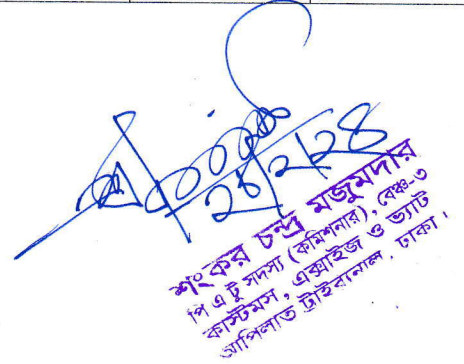 ২৮/২/২৪
শংকর চন্দ্র মজুমদার
পি এ টু সদস্য (কমিশনার), বেঞ্চ-৩
কাস্টমস, এক্সাইজ ও ভ্যাট
আপিলাত ট্রাইব্যুনাল, ঢাকা।